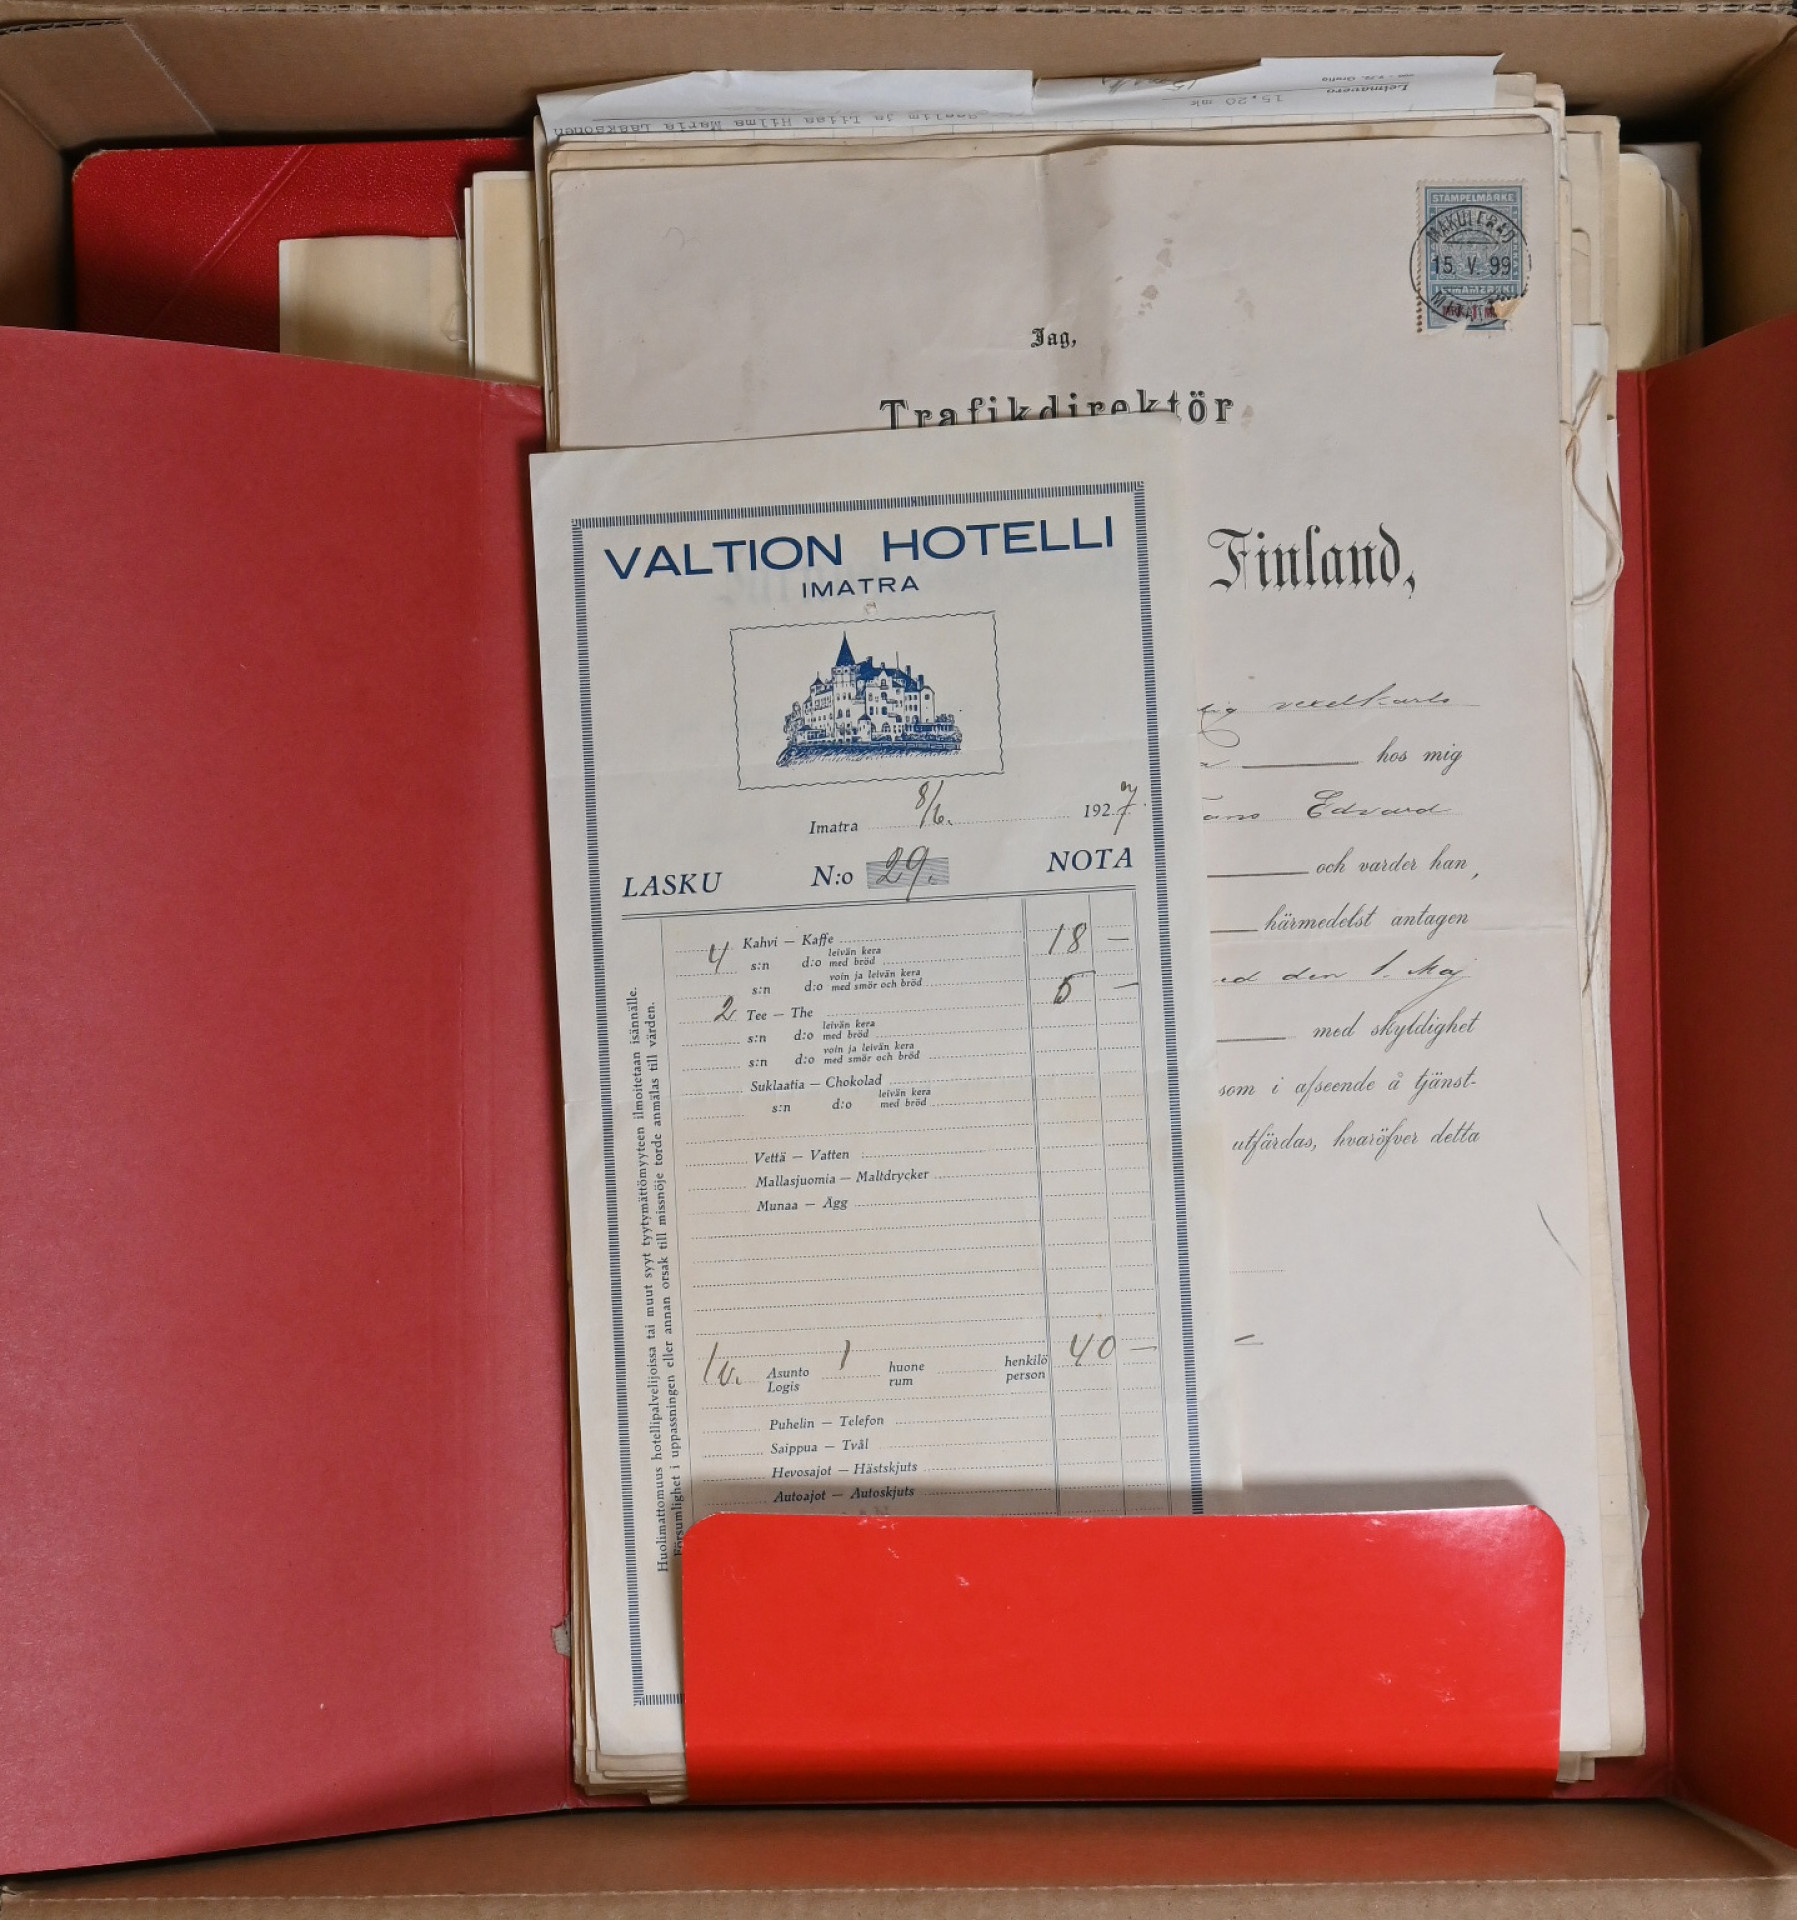 Leimavero
15.20 mk
ja Liisa Hilma Maria Laaksonen
STÄMPELMÄRKE
MAKULERAD
15. V. 99
LEIMAMERKKI
Jag,
Trafikdirektör
Finland,
vexelkarls
hos mig
Edvard
och varder han,
härmedelst antagen
den 1. Maj
med skyldighet
som i afseende å tjänst-
utfärdas, hvaröfver detta
VALTION HOTELLI
IMATRA
Imatra 8/6. 1927
LASKU N:o 29. NOTA
4 Kahvi — Kaffe 18 —
s:n d:o leivän kera
med bröd
s:n d:o voin ja leivän kera
med smör och bröd
2 Tee — The 5 —
s:n d:o leivän kera
med bröd
s:n d:o voin ja leivän kera
med smör och bröd
Suklaatia — Chokolad
s:n d:o leivän kera
med bröd
Vettä — Vatten
Mallasjuomia — Maltdrycker
Munaa — Ägg
1 v. Asunto 1 huone henkilö 40 —
Logis rum person
Puhelin — Telefon
Saippua — Tvål
Hevosajot — Hästskjuts
Autoajot — Autoskjuts
Huolimattomuus hotellipalvelijoissa tai muut syyt tyytymättömyyteen ilmoitetaan isännälle.
Försumlighet i uppassningen eller annan orsak till missnöje torde anmälas till värden.